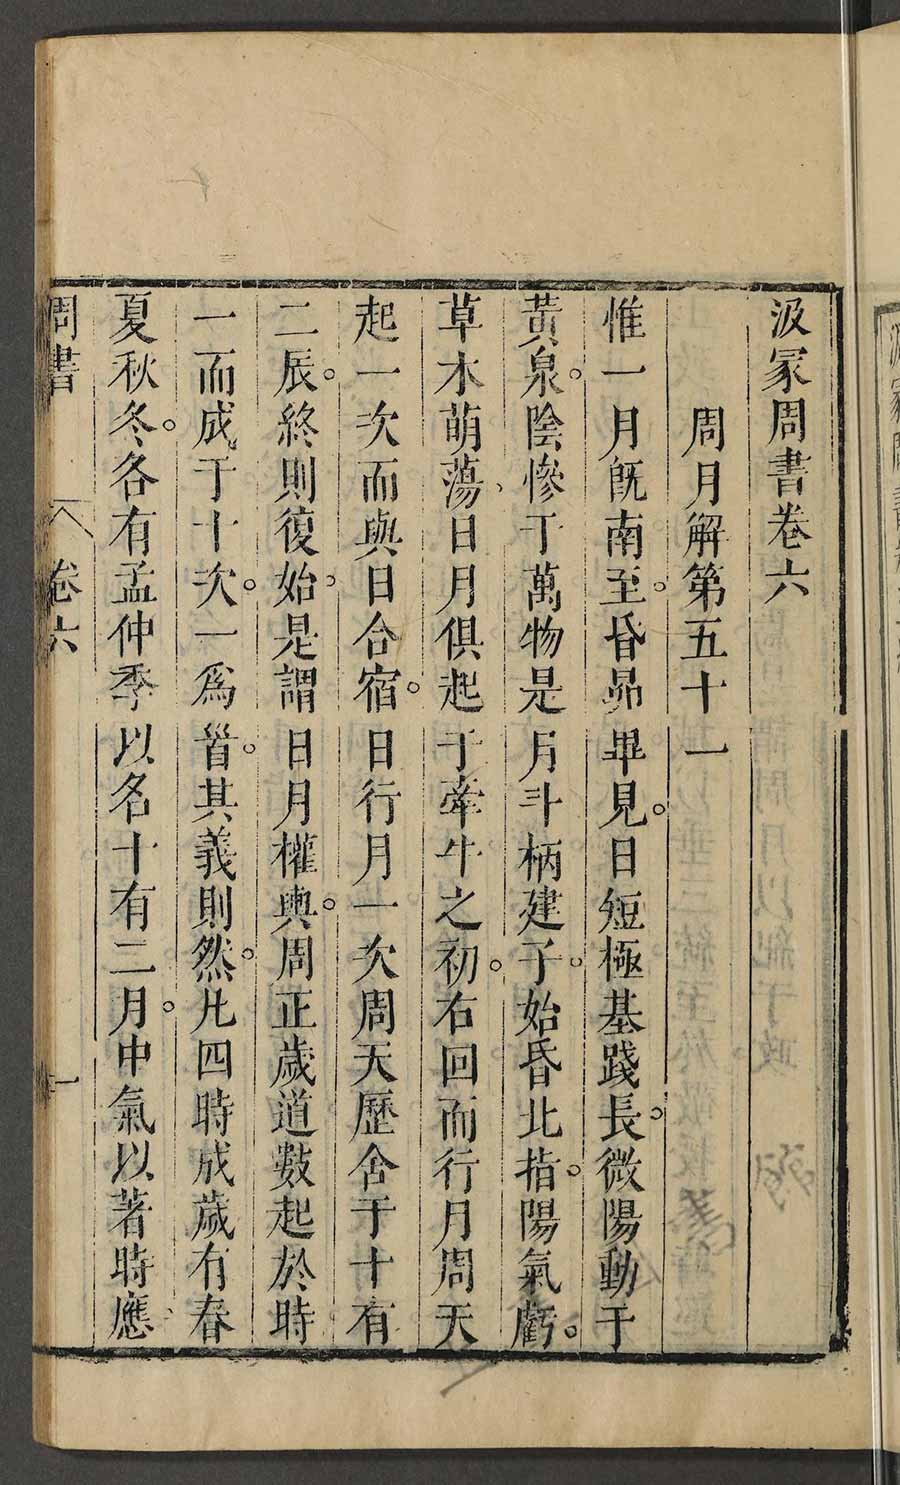 汲冢周書卷六
周月解第五十一
惟一月既南至。昏昴畢見。日短極基踐長。微陽動于
黃泉。陰慘于萬物是月斗柄建子。始昏北指。陽氣虧。
草木萌蕩、日月俱起于牽牛之初。右回而行月周天
起一次而與日合宿。日行月一次周天歷舍于十有
二辰。終則復始。是謂日月權輿。周正歲道數起於時
一而成于十次。一爲首。其義則然。凡四時成歲有春
夏秋冬。各有孟仲季以名十有二月。中氣以著時應
周書
卷六
一